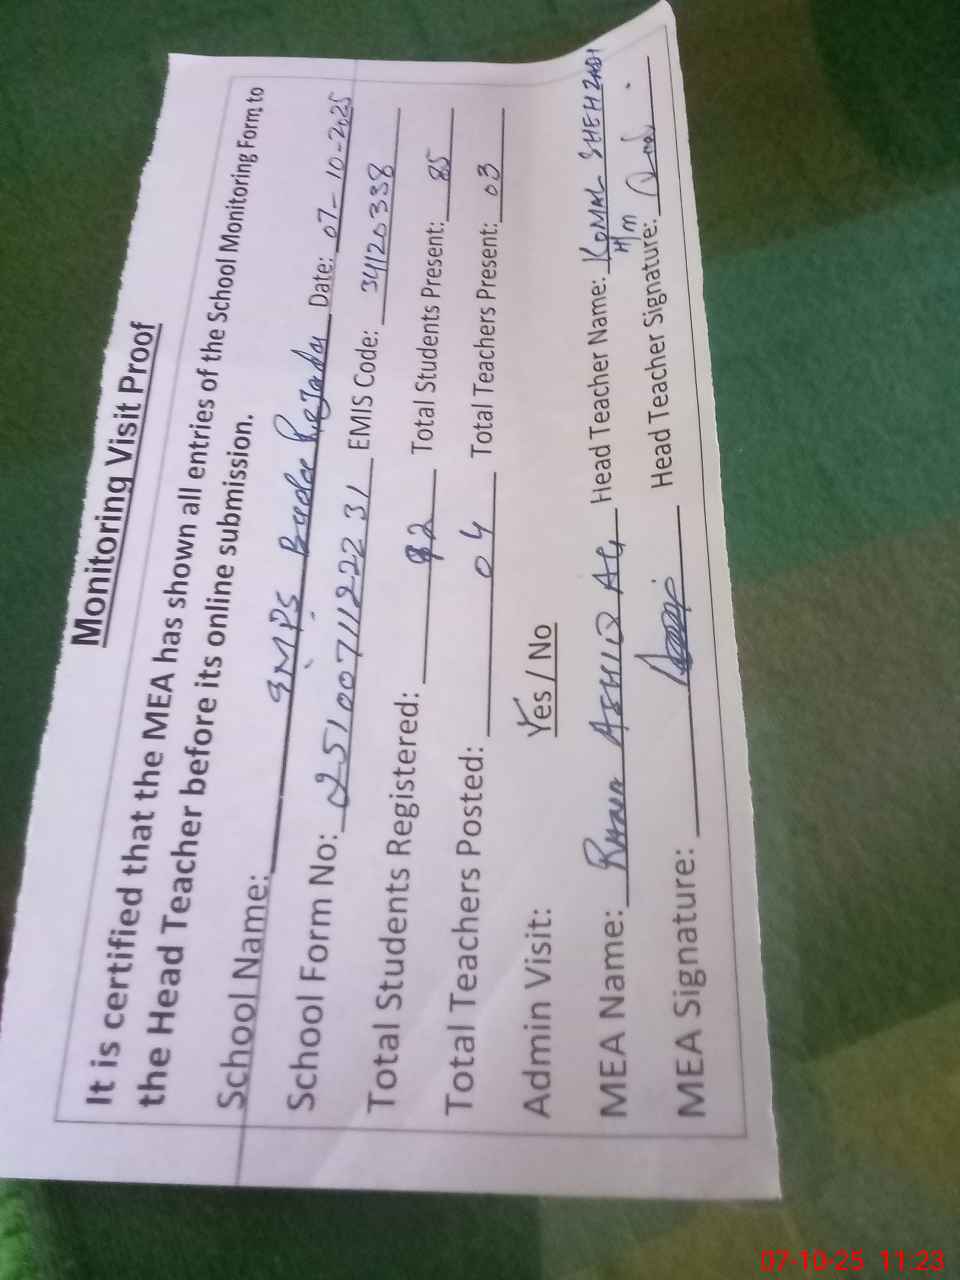 Monitoring Visit Proof
It is certified that the MEA has shown all entries of the School Monitoring Form to
the Head Teacher before its online submission.
School Name: GMPS Date: 07-10-2025
School Form No: 251007112231 EMIS Code: 34120338
Total Students Registered: 92 Total Students Present: 85
Total Teachers Posted: 04 Total Teachers Present: 03
Admin Visit: Yes / No
MEA Name: RANA ASHIQ ALI Head Teacher Name: KOMAL SHEHZADI
H/m
MEA Signature: Head Teacher Signature:
07-10-25 11:23